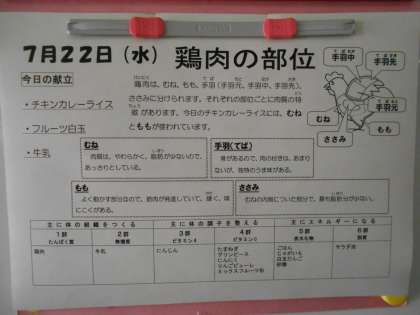 7月22日（水） 鶏肉の部位
今日の献立
・チキンカレーライス
・フルーツ白玉
・牛乳
鶏肉は、むね、もも、手羽（手羽元、手羽中、手羽先）、
ささみに分けられます。それぞれの部位ごとに肉質の特
徴があります。今日のチキンカレーライスには、むね
とももが使われています。
手羽中
手羽先
手羽元
もも
むね
ささみ
むね
肉質は、やわらかく、脂肪が少ないので、
あっさりとしている。
手羽（てば）
骨があるので、肉の付きは、あまり
ないが、独特のうま味がある。
もも
よく動かす部位なので、筋肉が発達していて、硬く、味
にこくがある。
ささみ
むねの内側についた部分で、最も脂肪分が少ない。
主に体の組織をつくる 主に体の調子を整える 主にエネルギーになる
1群 2群 3群 4群 5群 6群
たんぱく質 無機質 ビタミンA ビタミンC 炭水化物 脂質
鶏肉 牛乳 にんじん たまねぎ ごはん サラダ油
グリンピース じゃがいも
にんにく 白玉だんご
りんごピューレ 砂糖
ミックスフルーツ缶